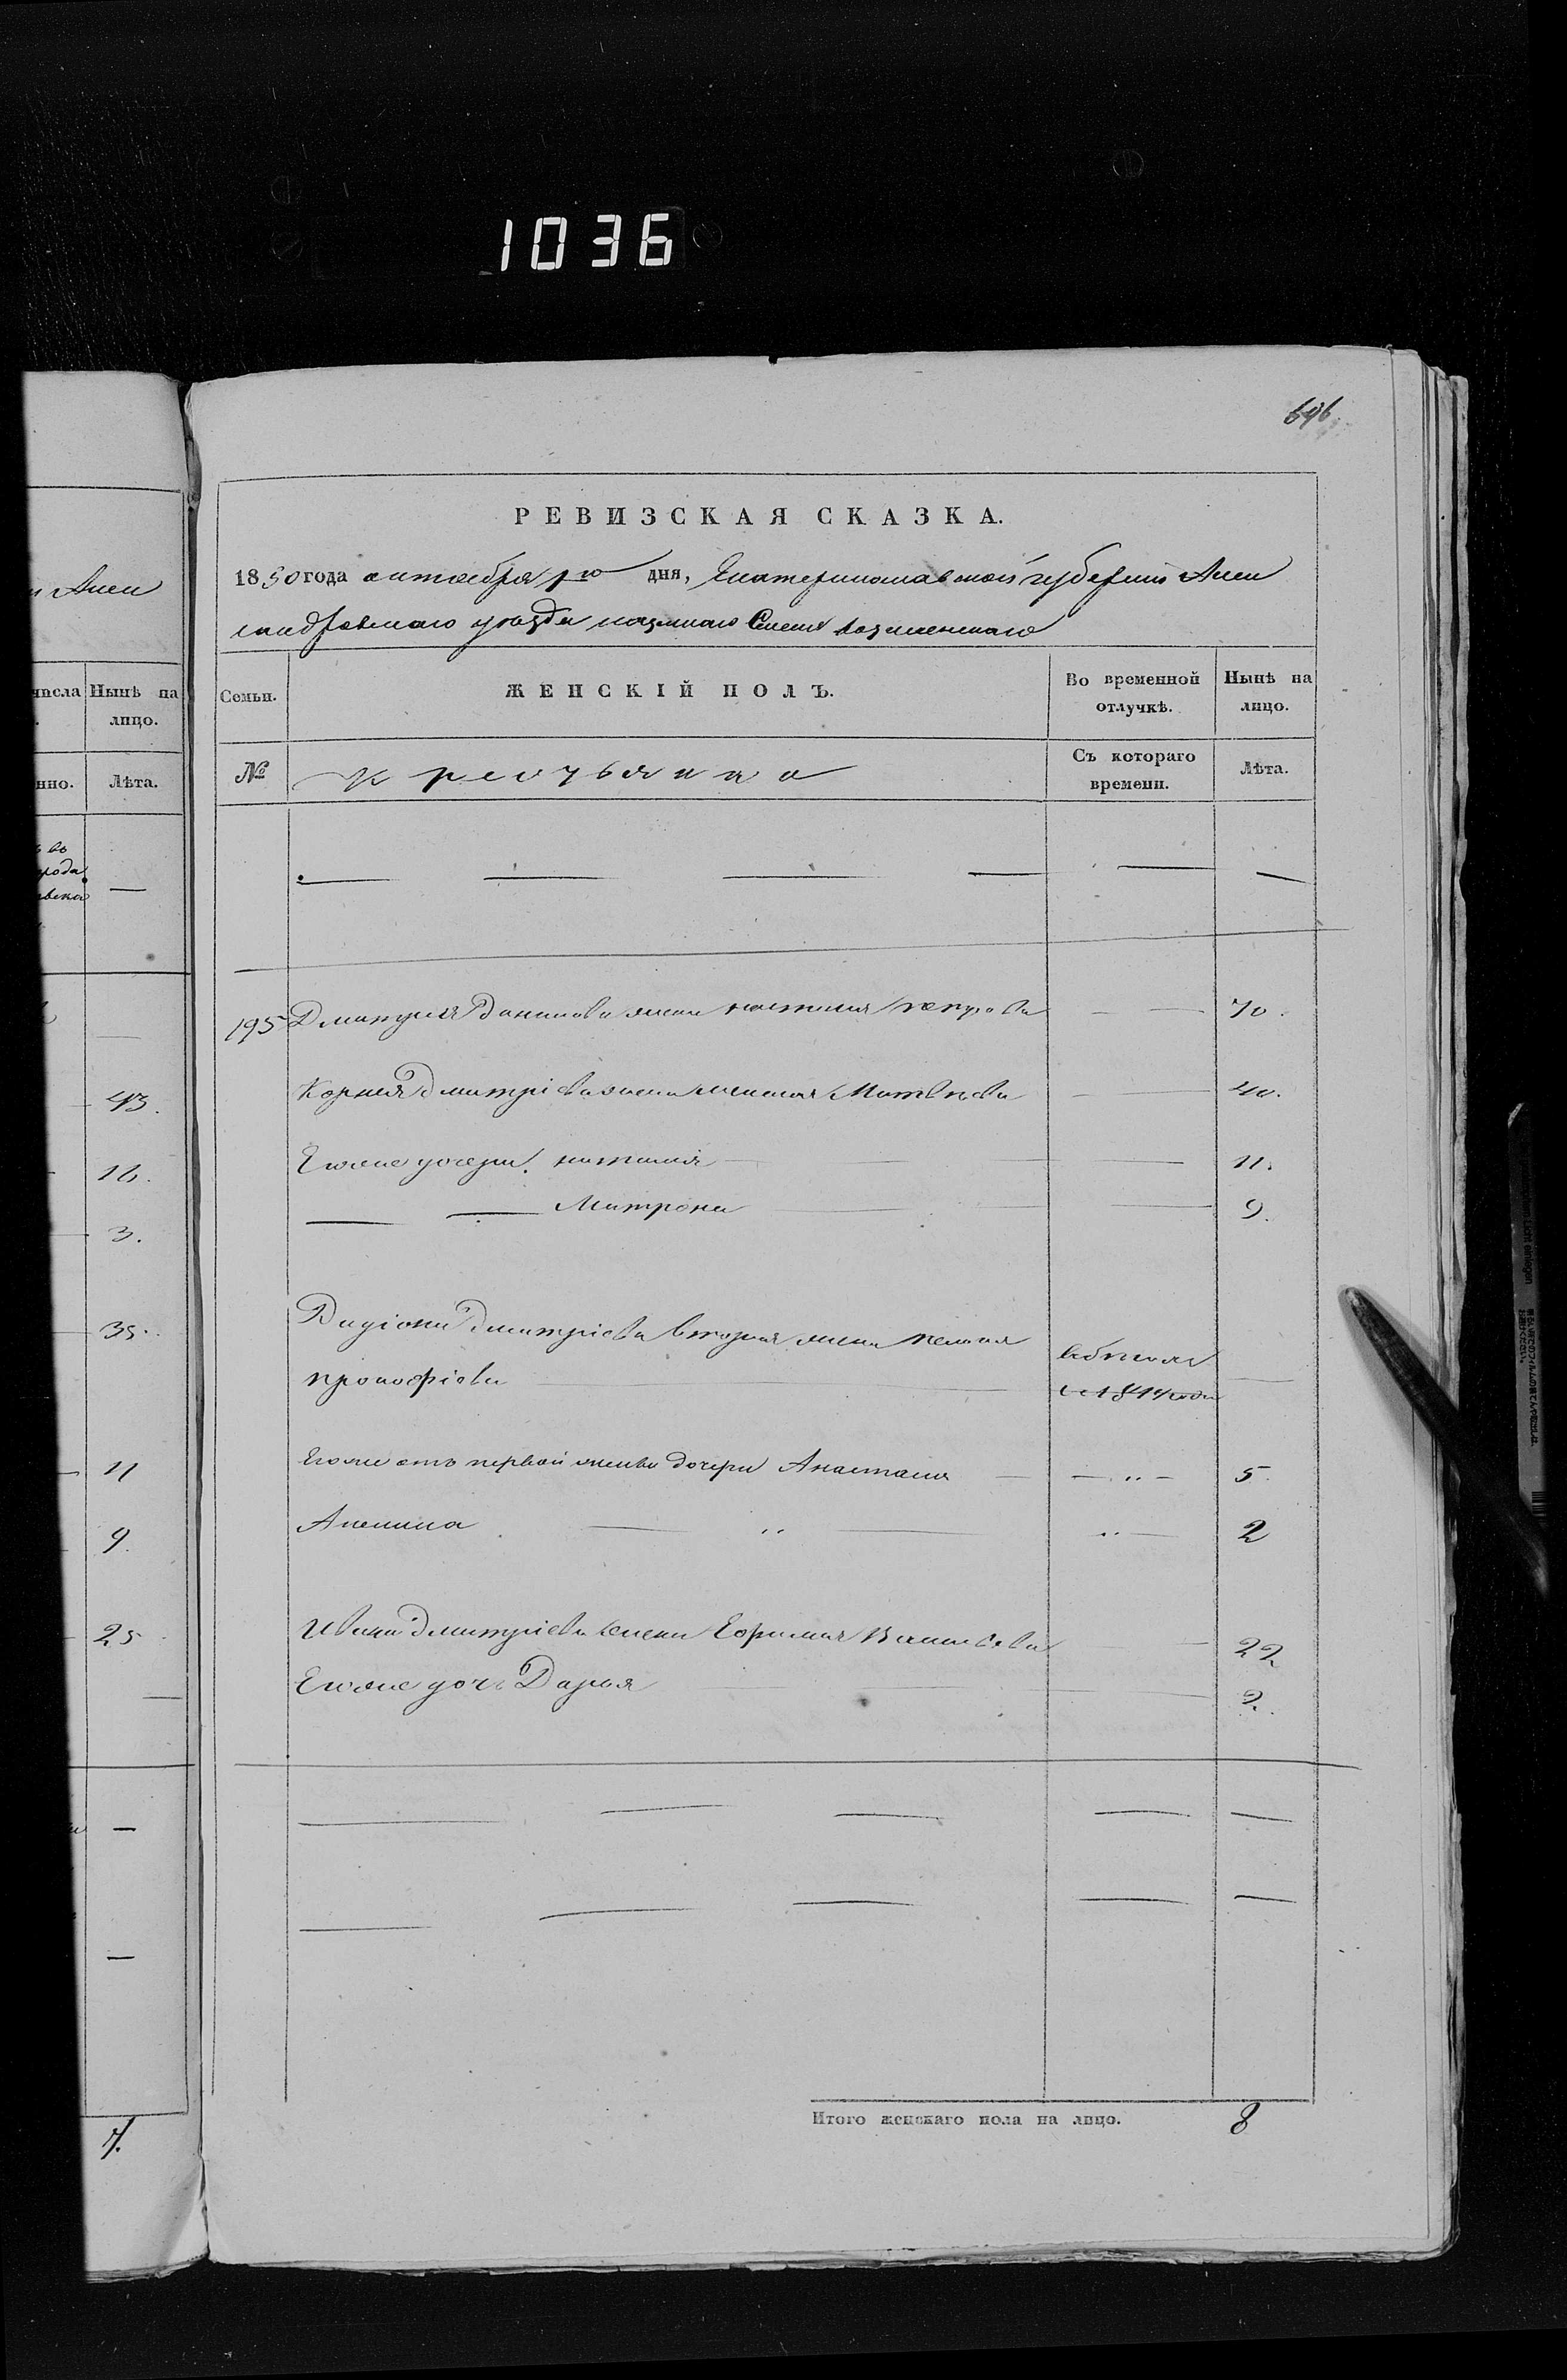 1036
696
РЕВИЗСКАЯ СКАЗКА.
1850 года октября 1го дня, Екатеринославской губернии Алек
сандровскаго уѣзда казеннаго Села
Семьи.
ЖЕНСКІЙ ПОЛЪ.
Во временной отлучкѣ.
Нынѣ на лицо.
№
крестьянка
Съ котораго времени.
Лѣта.
195 Дмитрия Данилова жена наталия петрова 70.
Корнея Дмитріева жена Матвѣева 40.
Егоже дочери наталия 11.
Матрона 9.
Радіона Дмитріева вторая жена пелагея
прокофіева
Егоже отъ первой жены дочери Анастасия 5.
Акелина 2
Ивана Дмитріева жена Ефимия 22
Егоже дочь Дарья 2.
Итого женскаго пола на лицо. 8
Алек
числа
Нынѣ на лицо.
Лѣта.
43.
16.
3.
35.
11
9.
25
7.